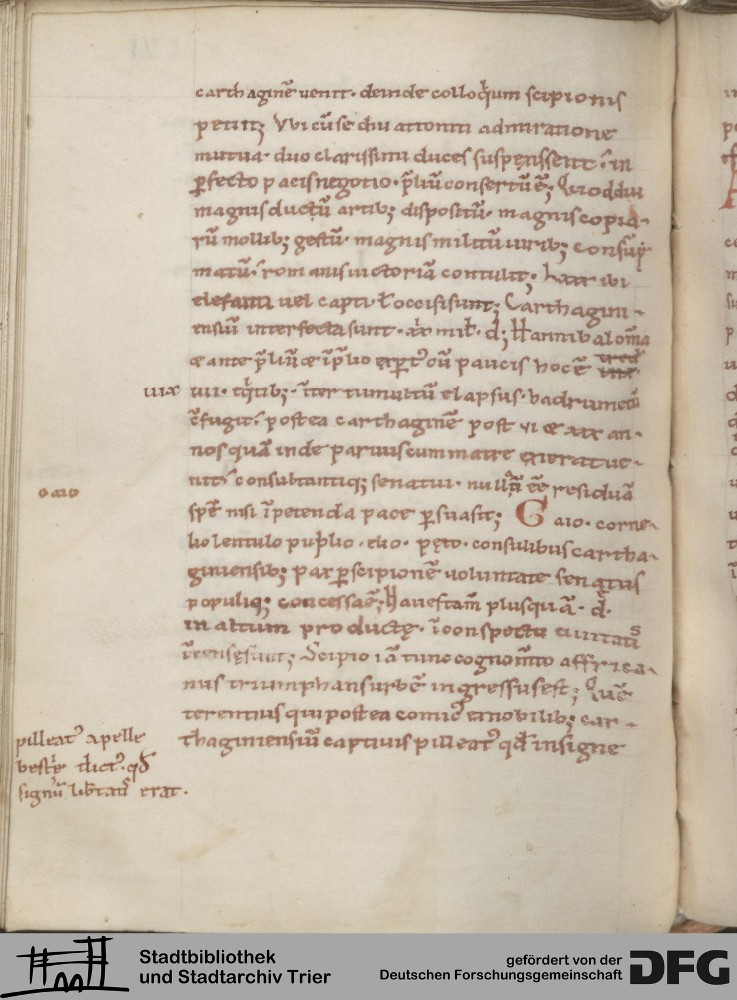 carthaginē uenit· deinde colloq̄um scipionis
petiit; Vbi cū se diu attoniti admiratione
mutua· duo clarissimi duces suspęnsissent· in
ꝑfecto pacis negotio· p̄liū consertū ē; Quod diu
magnis ductū artib; dispositū· magnis copia-
rū mollib; gestū· magnis militū uirib; consūp
matū· romanis uictoriā contulit; ibi
elefanti uel capti ł occisi sunt; Carthagini-
ensiū interfecta sunt· xx mil· d; Hannibal om̄a
& ante p̄liū & ī p̄lio exꝑt᾽ cū paucis hoc ē
uiix uii· eq̄tib; īter tumultū elapsus· hadrumetū
ɔ̄fugit· postea carthaginē post ui & xxx an-
nos quā inde paruus cum matre exierat ue-
nit· consultantiq; senatui· nullā ēē residuā
oaio
spē nisi ī petenda pace ꝑsuasit; Gaio· corne-
lio lentulo pup̄lio· elio· pęto· consulibus cartha-
giniensib; pax ꝑ scipionē uoluntate senatus
populiq; concessa ē; Haues tam̄ plusquā· d·
in altum productę· ī conspectu ciuitatis
ī̄censę sunt; Scipio iā tunc cognom̄to affrica-
nus triumphans urbē ingressus est; Quē
terentius qui postea comic᾽ e nobilib; car-
thaginiensiū captiuis pilleat᾽ qđ insigne
pilleat᾽ a pelle
bestię dict᾽· qđ
signū lib̄tatis erat·
Stadtbibliothek
und Stadtarchiv Trier
gefördert von der
Deutschen Forschungsgemeinschaft
DFG